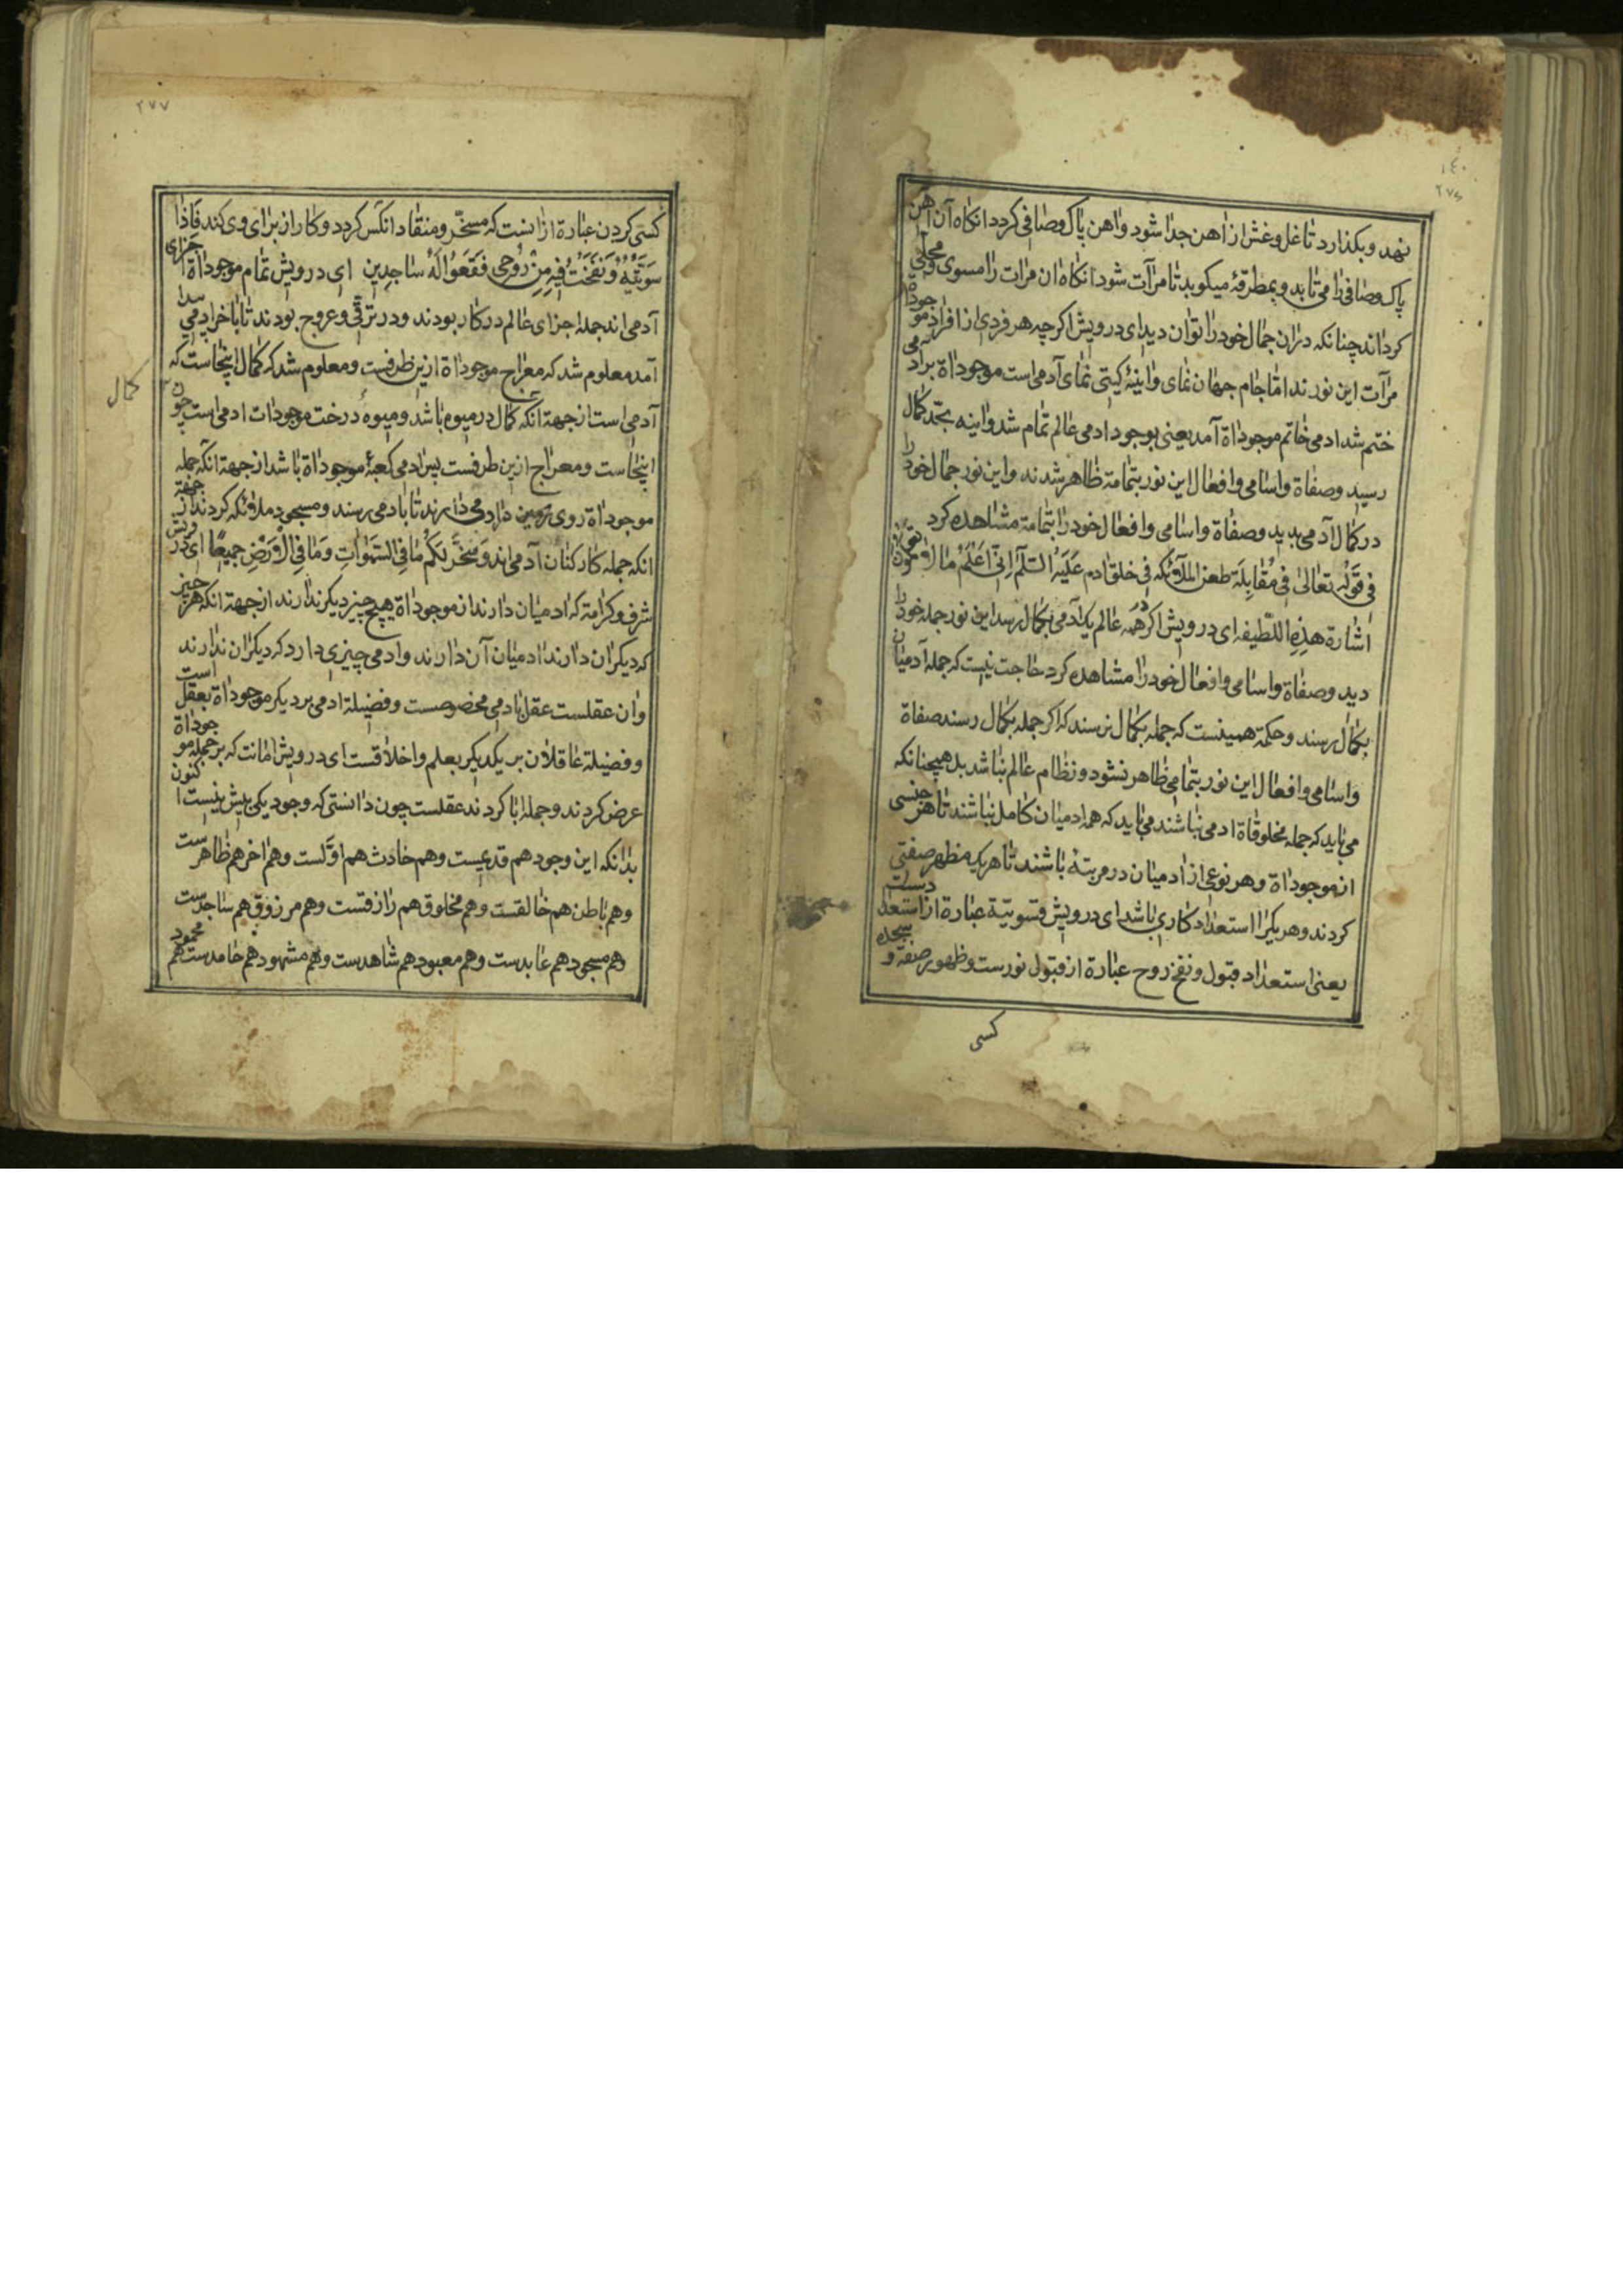 ١٤٠
٢٧٦
نهد وبکذارد تا غل وغش از اهن جدا شود واهن پاک وصافی کردد انکاه آن اهن
پاک وصافی را می تابد وبمطرقه میکوبد تا مرآت شود انکاه ان مرات را مسوی ومجلی
کرداند چنانکه در ان جمال خود را بتوان دید ای درویش اکرچه هر فردی از افراد موجوداة
مرآت این نورند اما جام جهان نمای واینهٔ کیتی نمای آدمی است موجوداة برادمی
ختم شد ادمی خاتم موجوداة آمد یعنی بوجود ادمی عالم تمام شد واینه بحد کمال
رسید وصفاة واسامی وافعال این نور بتمامة ظاهر شدند واین نور جمال خود را
در کمال آدمی بدید وصفاة واسامی وافعال خود را بتمامة مشاهده کرد
فی قوله تعالی فی مقابلة طعن الملآئکه فی خلق ادم علیه السلم انی اعلم ما لا تعلمون
اشارة هذه اللطیفه ای درویش اکر همه عالم یک آدمی بکمال رسد این نور جمله خود را
دید وصفاة واسامی وافعال خود را مشاهده کرد حاجت نیست که جمله آدمیان
بکمال رسند وحکمة همینست که جمله بکمال نرسند که اکر جمله بکمال رسند صفاة
واسامی وافعال این نور بتمامی ظاهر نشود ونظام عالم نباشد بل همچنانکه
می باید که جمله مخلوقاة ادمی نباشند می باید که همه ادمیان کامل نباشند تا هر جنسی
از موجوداة وهر نوعی از ادمیان در مرتبهٔ باشند تا هر یک مظهر صفتی
کردند وهر یک را استعداد کاری باشد ای درویش تسویة عبارة از استعداد
یعنی استعداد قبول ونفخ روح عبارة از قبول نورست وظهور صفة وسجده
کسی
٢٧٧
کسی کردن عبارة از انست که مسخّر ومنقاد انکس کردد وکار از برای وی کند فَاِذا
سَوَّیْتُهُ وَنَفَخْتُ فیهِ مِنْ رُوحی فَقَعَوُا لَهُ ساجِدین ای درویش تمام موجوداة اجزای
آدمی اند جمله اجزای عالم در کار بودند ودر ترقی وعروج بودند تا باخر ادمی پیدا
آمد معلوم شد که معراج موجوداة ازین طرفست ومعلوم شد که کمال اینجاست که
کمال
آدمی است از جهة آنکه کمال در میوه باشد ومیوهٔ درخت موجودات ادمی است چون
اینجاست ومعراج ازین طرفست پس ادمی کعبهٔ موجوداة باشد از جهة انکه جمله
موجوداة روی درین دارد می دارند تا بادمی رسند ومسجود ملائکه کردند از جهة
انکه جمله کارکنان آدمی اند وَسَخَّرَ لَکُمْ مَا فِی السَّمَوَاتِ وَمَا فِی الْاَرْضِ جَمیعًا ای درویش
شرف وکرامة که ادمیان دارند از موجوداة هیچ چیز دیکر ندارند از جهة انکه هر چیز
که دیکران دارند ادمیان آن دارند وادمی چیزی دارد که دیکران ندارند
وان عقلست عقل بادمی مخصوصست وفضیلة ادمی بر دیکر موجوداة بعقل است
وفضیلة عاقلان بر یکدیکر بعلم واخلاقست ای درویش امانت که بر جمله موجوداة
عرض کردند وجمله ابا کردند عقلست چون دانستی که وجود یکی بیش نیست اکنون
بدانکه این وجود هم قدیمست وهم حادث هم اوّلست وهم اخر هم ظاهرست
وهم باطن هم خالقست وهم مخلوق هم رازقست وهم مرزوق هم ساجدست
وهم مسجود هم عابدست وهم معبود هم شاهدست وهم مشهود هم حامدست هم محمود